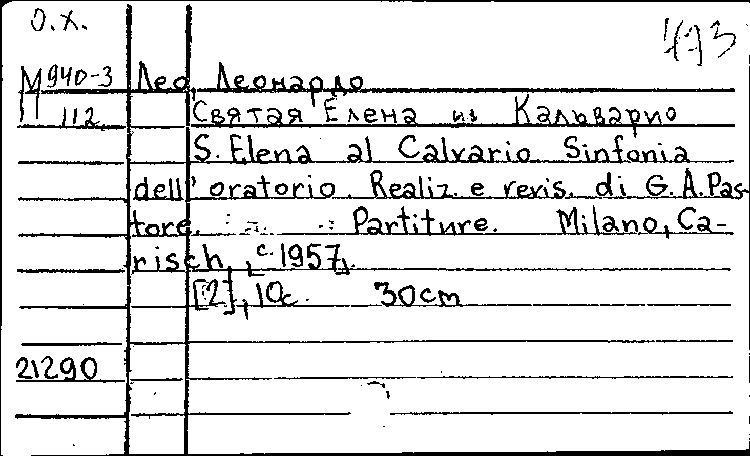 О.Х.
473
М940-3 Лео, Леонардо
112 Святая Елена из Кальварио
S. Elena al Calvario Sinfonia
dell' oratorio. Realiz. e revis. di G. A. Pas-
tore. Partiture. Milano, Ca-
risch, [c. 1957].
[2], 10c. 30cm
21290